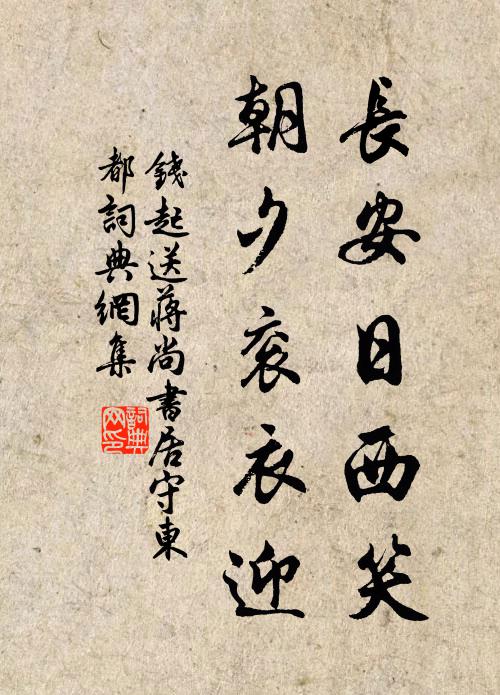 長安日西笑
朝夕袞衣迎
錢起送蔣尚書居守東
都詞典網集
詞典
网印